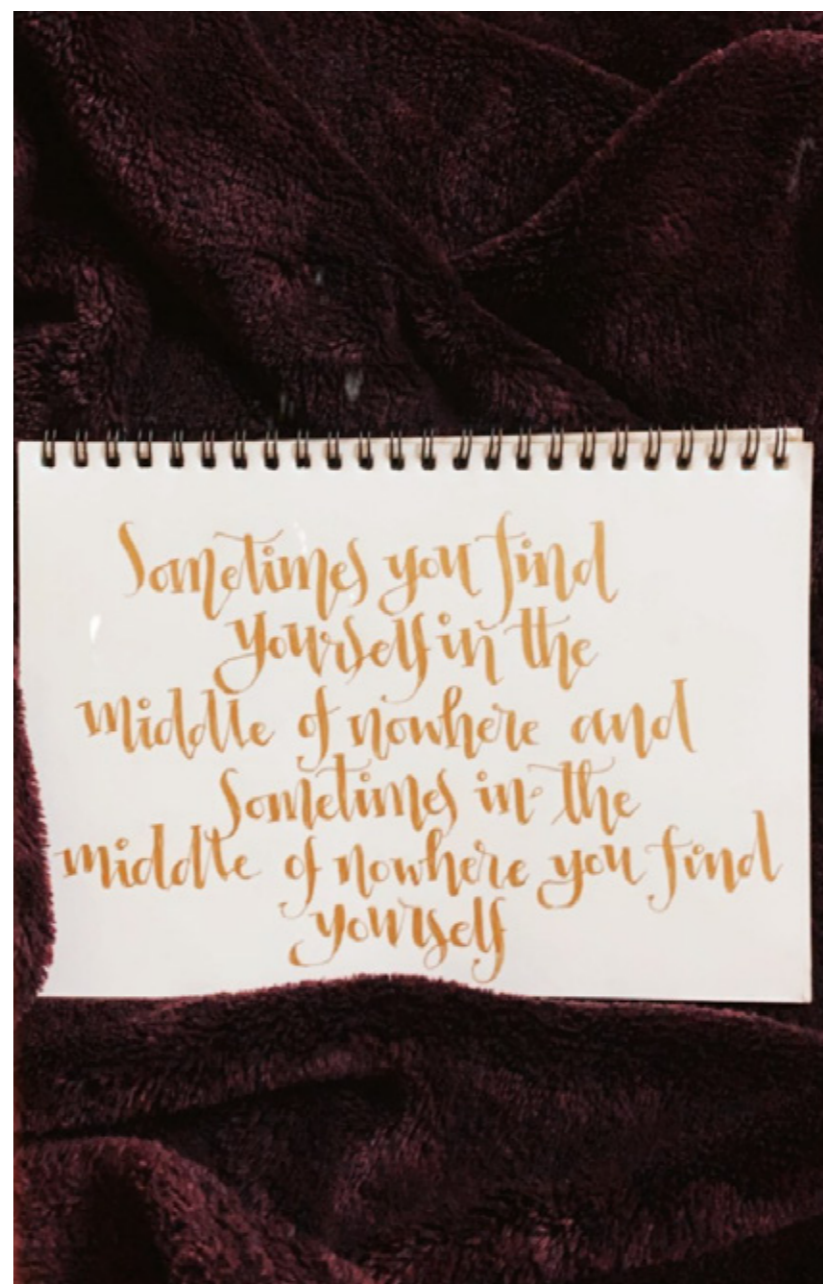 Sometimes you find
yourself in the
middle of nowhere and
Sometimes in the
middle of nowhere you find
yourself